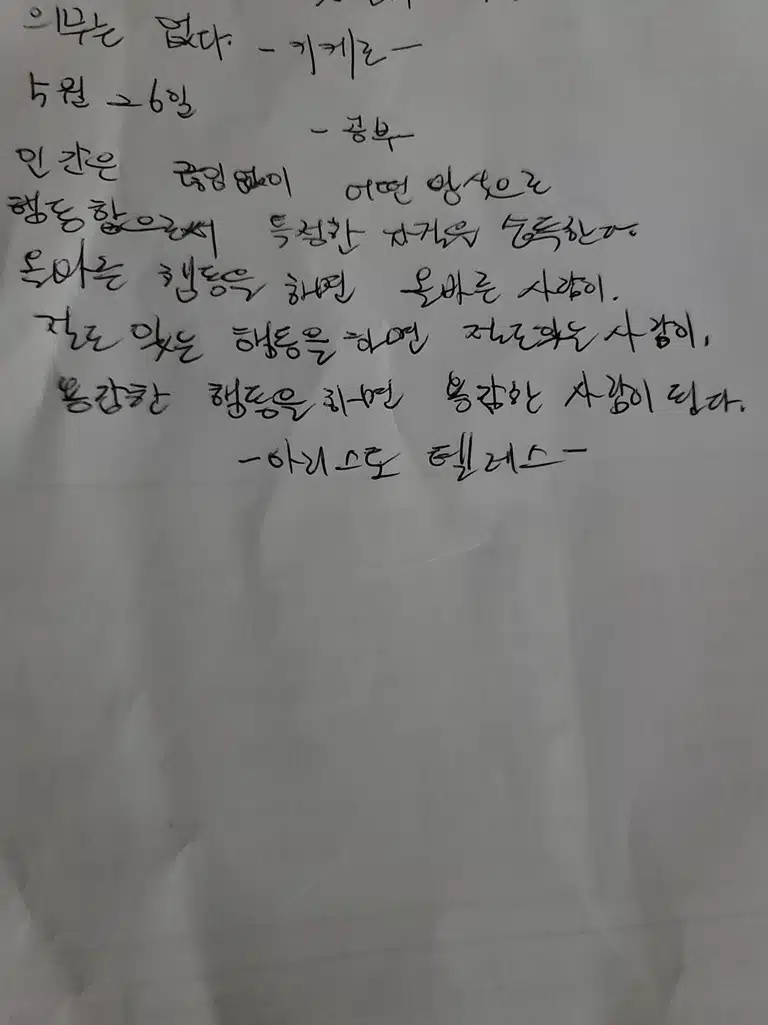 의무는 없다. -키케로-
5월 26일
-공부-
인간은 끊임없이 어떤 양식으로
행동함으로써 특정한 자질을 습득한다.
올바른 행동을 하면 올바른 사람이.
절도 있는 행동을 하면 절도있는 사람이.
용감한 행동을 하면 용감한 사람이 된다.
-아리스토 텔레스-